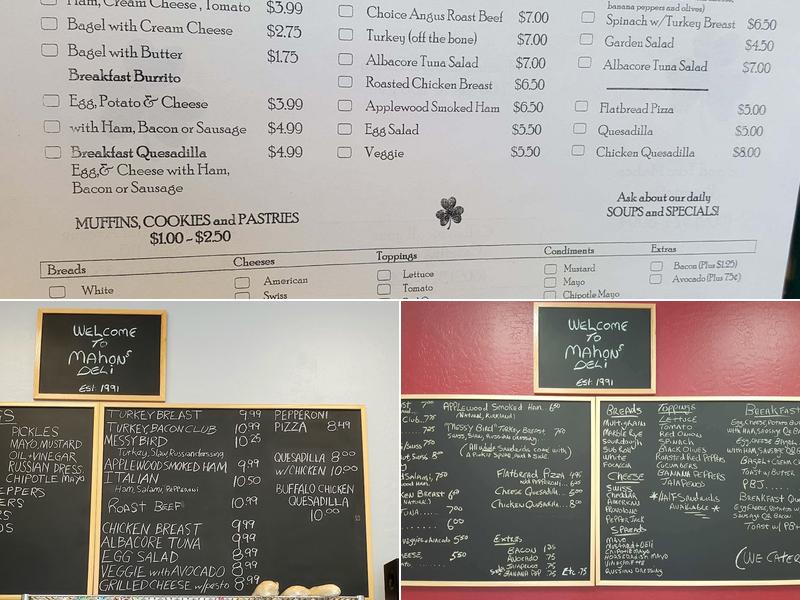 Ham, Cream Cheese, Tomato $3.99
Bagel with Cream Cheese $2.75
Bagel with Butter $1.75
Breakfast Burrito
Egg, Potato & Cheese $3.99
with Ham, Bacon or Sausage $4.99
Breakfast Quesadilla $4.99
Egg,& Cheese with Ham,
Bacon or Sausage
MUFFINS, COOKIES and PASTRIES
$1.00 - $2.50
Choice Angus Roast Beef $7.00
Turkey (off the bone) $7.00
Albacore Tuna Salad $7.00
Roasted Chicken Breast $6.50
Applewood Smoked Ham $6.50
Egg Salad $5.50
Veggie $5.50
banana peppers and olives)
Spinach w/Turkey Breast $6.50
Garden Salad $4.50
Albacore Tuna Salad $7.00
Flatbread Pizza $5.00
Quesadilla $5.00
Chicken Quesadilla $8.00
Ask about our daily
SOUPS and SPECIALS!
Breads
White
Cheeses
American
Swiss
Toppings
Lettuce
Tomato
Condiments
Mustard
Mayo
Chipotle Mayo
Extras
Bacon (Plus $1.25)
Avocado (Plus 75¢)
WELCOME
TO
MAHON'S
DELI
EST. 1991
GS
PICKLES
MAYO, MUSTARD
OIL+VINEGAR
RUSSIAN DRESS
CHIPOTLE MAYO
EPPERS
ERS
S
DS
TURKEY BREAST 9.99
TURKEY, BACON CLUB 10.99
MESSY BIRD 10.25
Turkey, Slaw, Russian dressing
APPLEWOOD SMOKED HAM 9.99
ITALIAN 10.50
Ham, Salami, Pepperoni
ROAST BEEF 10.99
CHICKEN BREAST 9.99
ALBACORE TUNA 9.99
EGG SALAD 8.99
VEGGIE with AVOCADO 8.99
GRILLED CHEESE w/pesto 8.99
PEPPERONI
PIZZA 8.49
QUESADILLA 8.00
w/CHICKEN 10.00
BUFFALO CHICKEN
QUESADILLA
10.00
WELCOME
TO
MAHON'S
DELI
EST. 1991
7.00
Club
APPLEWOOD SMOKED HAM 6.50
"MESSY BIRD" TURKEY BREAST 7.50
SWISS, SLAW, RUSSIAN DRESSING
FLATBREAD PIZZA 4.95
WITH PEPPERONI
CHEESE QUESADILLA 5.00
CHICKEN QUESADILLA 8.00
6.00
5.50
EXTRAS
BACON 1.25
AVOCADO .75
JALAPENO .75
BANANA PEP .75
ETC .75
BREADS
MULTIGRAIN
MARBLE RYE
SOURDOUGH
SUB ROLL
WHITE
FOCACCIA
CHEESE
SWISS
CHEDDAR
AMERICAN
PROVOLONE
PEPPER JACK
SPREADS
MAYO
MUSTARD
CHIPOTLE MAYO
HORSERADISH MAYO
RUSSIAN DRESSING
TOPPINGS
LETTUCE
TOMATO
RED ONIONS
SPINACH
BLACK OLIVES
ROASTED RED PEPPERS
CUCUMBERS
BANANA PEPPERS
JALAPENOS
*HALF SANDWICHES
AVAILABLE*
BREAKFAST
WITH HAM, SAUSAGE OR
BAGEL + CREAM
TOAST w/ BUTTER
PBJ
BREAKFAST
EGG, CHEESE, POTATO
SAUSAGE OR BACON
TOAST w/ PB+
(WE CATER